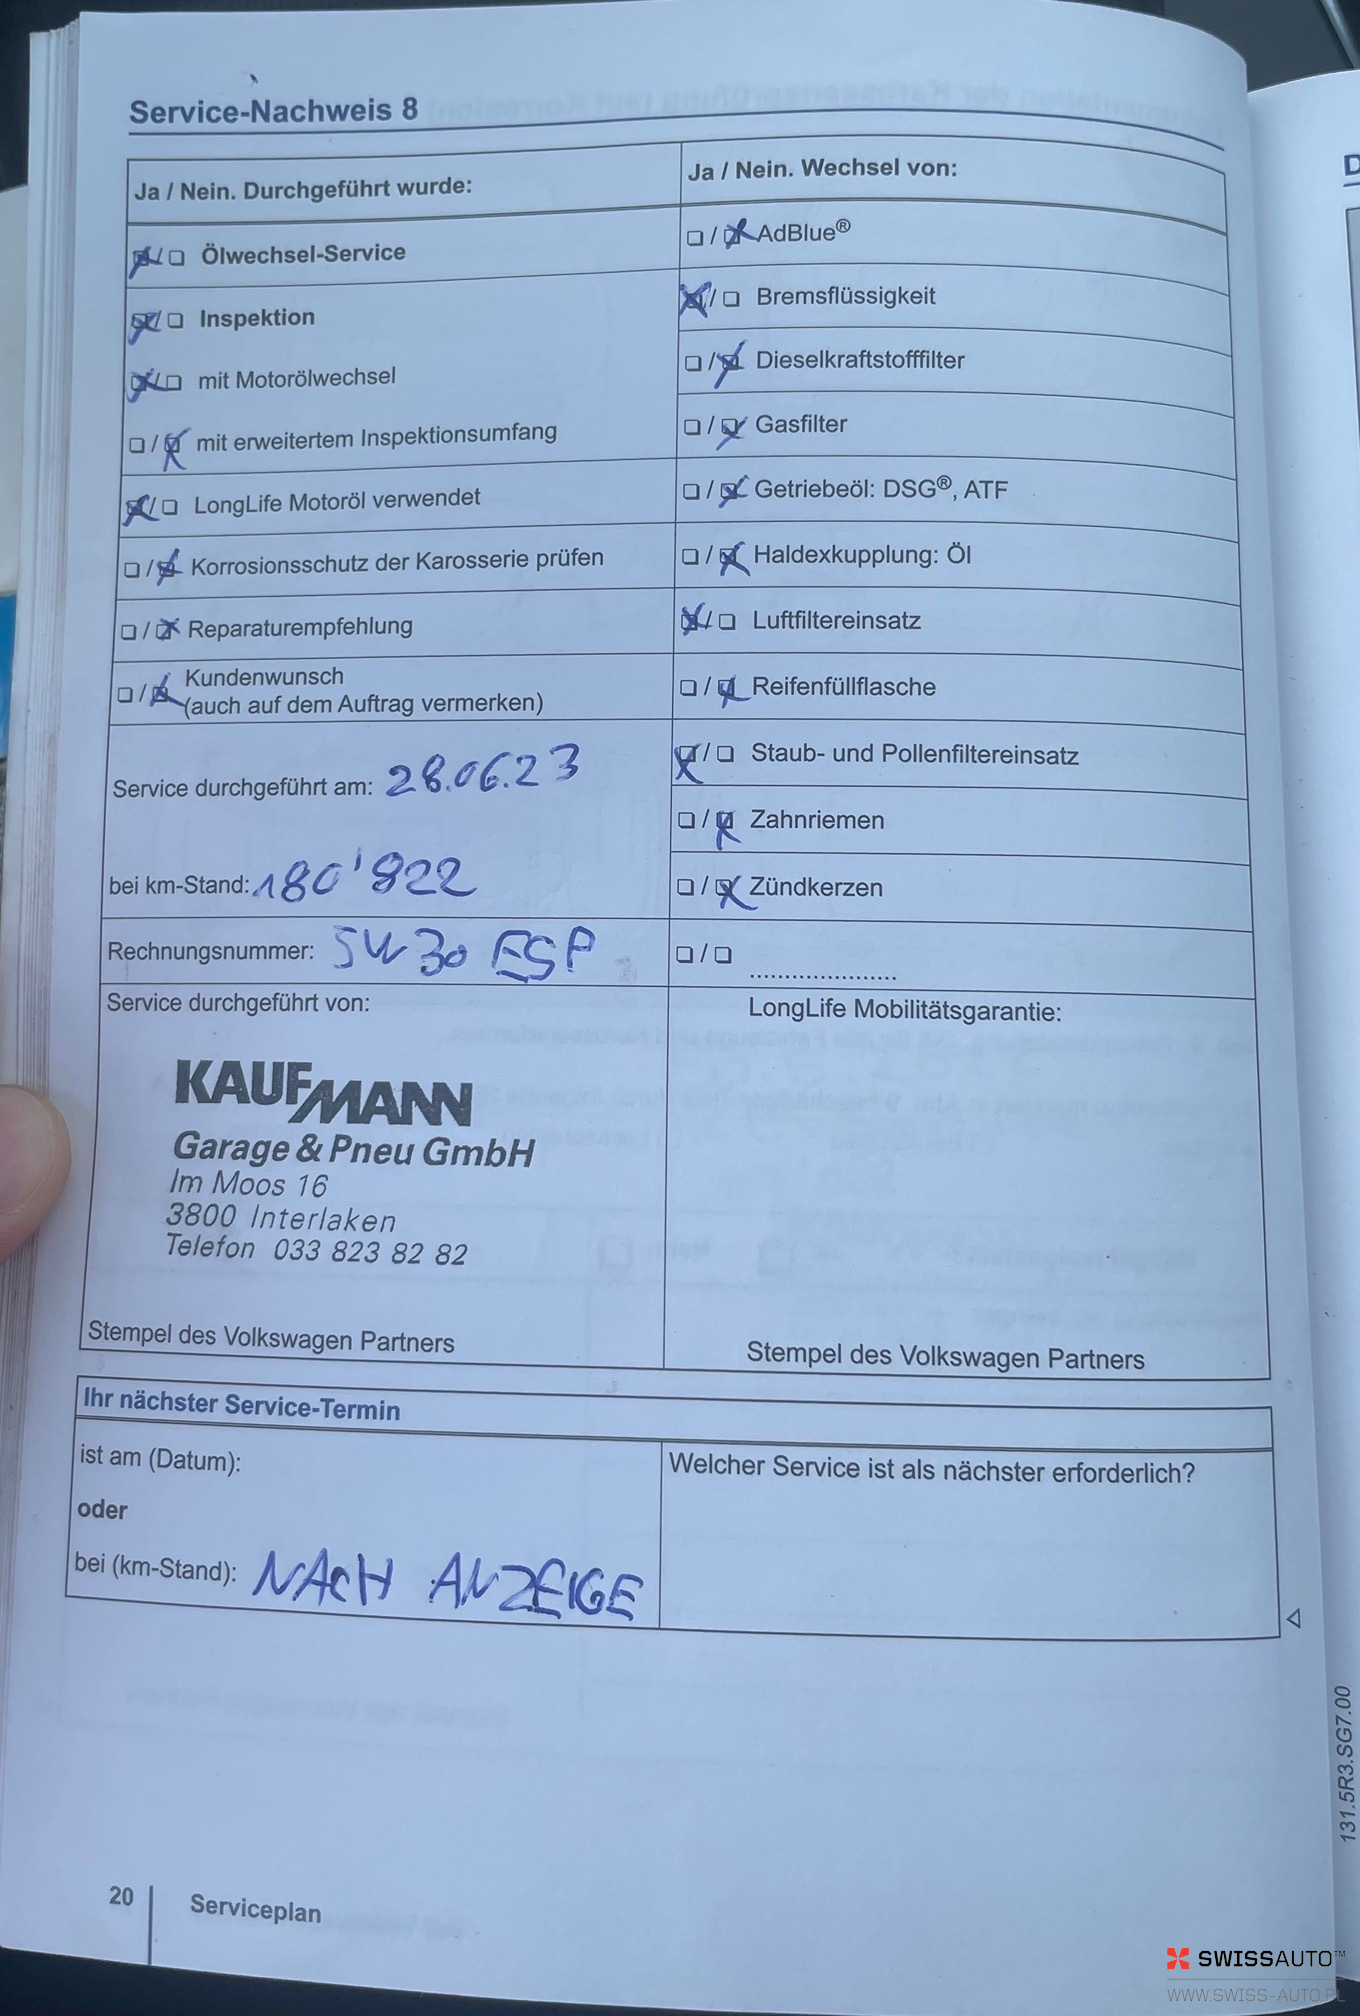 Service-Nachweis 8
Ja / Nein. Durchgeführt wurde:
Ölwechsel-Service
Inspektion
mit Motorölwechsel
mit erweitertem Inspektionsumfang
LongLife Motoröl verwendet
Korrosionsschutz der Karosserie prüfen
Reparaturempfehlung
Kundenwunsch
(auch auf dem Auftrag vermerken)
Service durchgeführt am: 28.06.23
bei km-Stand: 180'822
Rechnungsnummer: 5W30 ESP
Ja / Nein. Wechsel von:
AdBlue®
Bremsflüssigkeit
Dieselkraftstofffilter
Gasfilter
Getriebeöl: DSG®, ATF
Haldexkupplung: Öl
Luftfiltereinsatz
Reifenfüllflasche
Staub- und Pollenfiltereinsatz
Zahnriemen
Zündkerzen
Service durchgeführt von:
KAUFMANN
Garage & Pneu GmbH
Im Moos 16
3800 Interlaken
Telefon 033 823 82 82
Stempel des Volkswagen Partners
LongLife Mobilitätsgarantie:
Stempel des Volkswagen Partners
Ihr nächster Service-Termin
ist am (Datum):
oder
bei (km-Stand): NACH ANZEIGE
Welcher Service ist als nächster erforderlich?
131.5R3.SG7.00
20
Serviceplan
D
SWISSAUTO™
WWW.SWISS-AUTO.PL